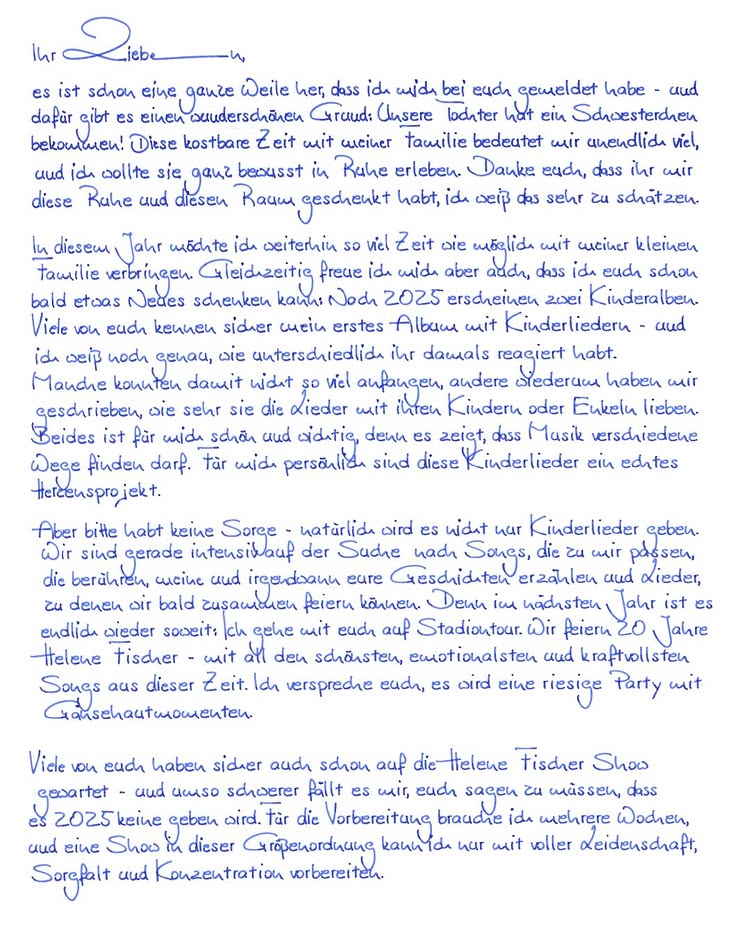 Ihr Lieben,
es ist schon eine ganze Weile her, dass ich mich bei euch gemeldet habe - und
dafür gibt es einen wunderschönen Grund: Unsere Tochter hat ein Schwesterchen
bekommen! Diese kostbare Zeit mit meiner Familie bedeutet mir unendlich viel,
und ich wollte sie ganz bewusst in Ruhe erleben. Danke euch, dass ihr mir
diese Ruhe und diesen Raum geschenkt habt, ich weiß das sehr zu schätzen.
In diesem Jahr möchte ich weiterhin so viel Zeit wie möglich mit meiner kleinen
Familie verbringen. Gleichzeitig freue ich mich aber auch, dass ich euch schon
bald etwas Neues schenken kann: Noch 2025 erscheinen zwei Kinderalben.
Viele von euch kennen sicher mein erstes Album mit Kinderliedern - und
ich weiß noch genau, wie unterschiedlich ihr damals reagiert habt.
Manche konnten damit nicht so viel anfangen, andere wiederum haben mir
geschrieben, wie sehr sie die Lieder mit ihren Kindern oder Enkeln lieben.
Beides ist für mich schön und wichtig, denn es zeigt, dass Musik verschiedene
Wege finden darf. Für mich persönlich sind diese Kinderlieder ein echtes
Herzensprojekt.
Aber bitte habt keine Sorge - natürlich wird es nicht nur Kinderlieder geben.
Wir sind gerade intensiv auf der Suche nach Songs, die zu mir passen,
die berühren, meine und irgendwann eure Geschichten erzählen und Lieder,
zu denen wir bald zusammen feiern können. Denn im nächsten Jahr ist es
endlich wieder soweit: Ich gehe mit euch auf Stadiontour. Wir feiern 20 Jahre
Helene Fischer - mit all den schönsten, emotionalsten und kraftvollsten
Songs aus dieser Zeit. Ich verspreche euch, es wird eine riesige Party mit
Gänsehautmomenten.
Viele von euch haben sicher auch schon auf die Helene Fischer Show
gewartet - und umso schwerer fällt es mir, euch sagen zu müssen, dass
es 2025 keine geben wird. Für die Vorbereitung brauche ich mehrere Wochen,
und eine Show in dieser Größenordnung kann ich nur mit voller Leidenschaft,
Sorgfalt und Konzentration vorbereiten.